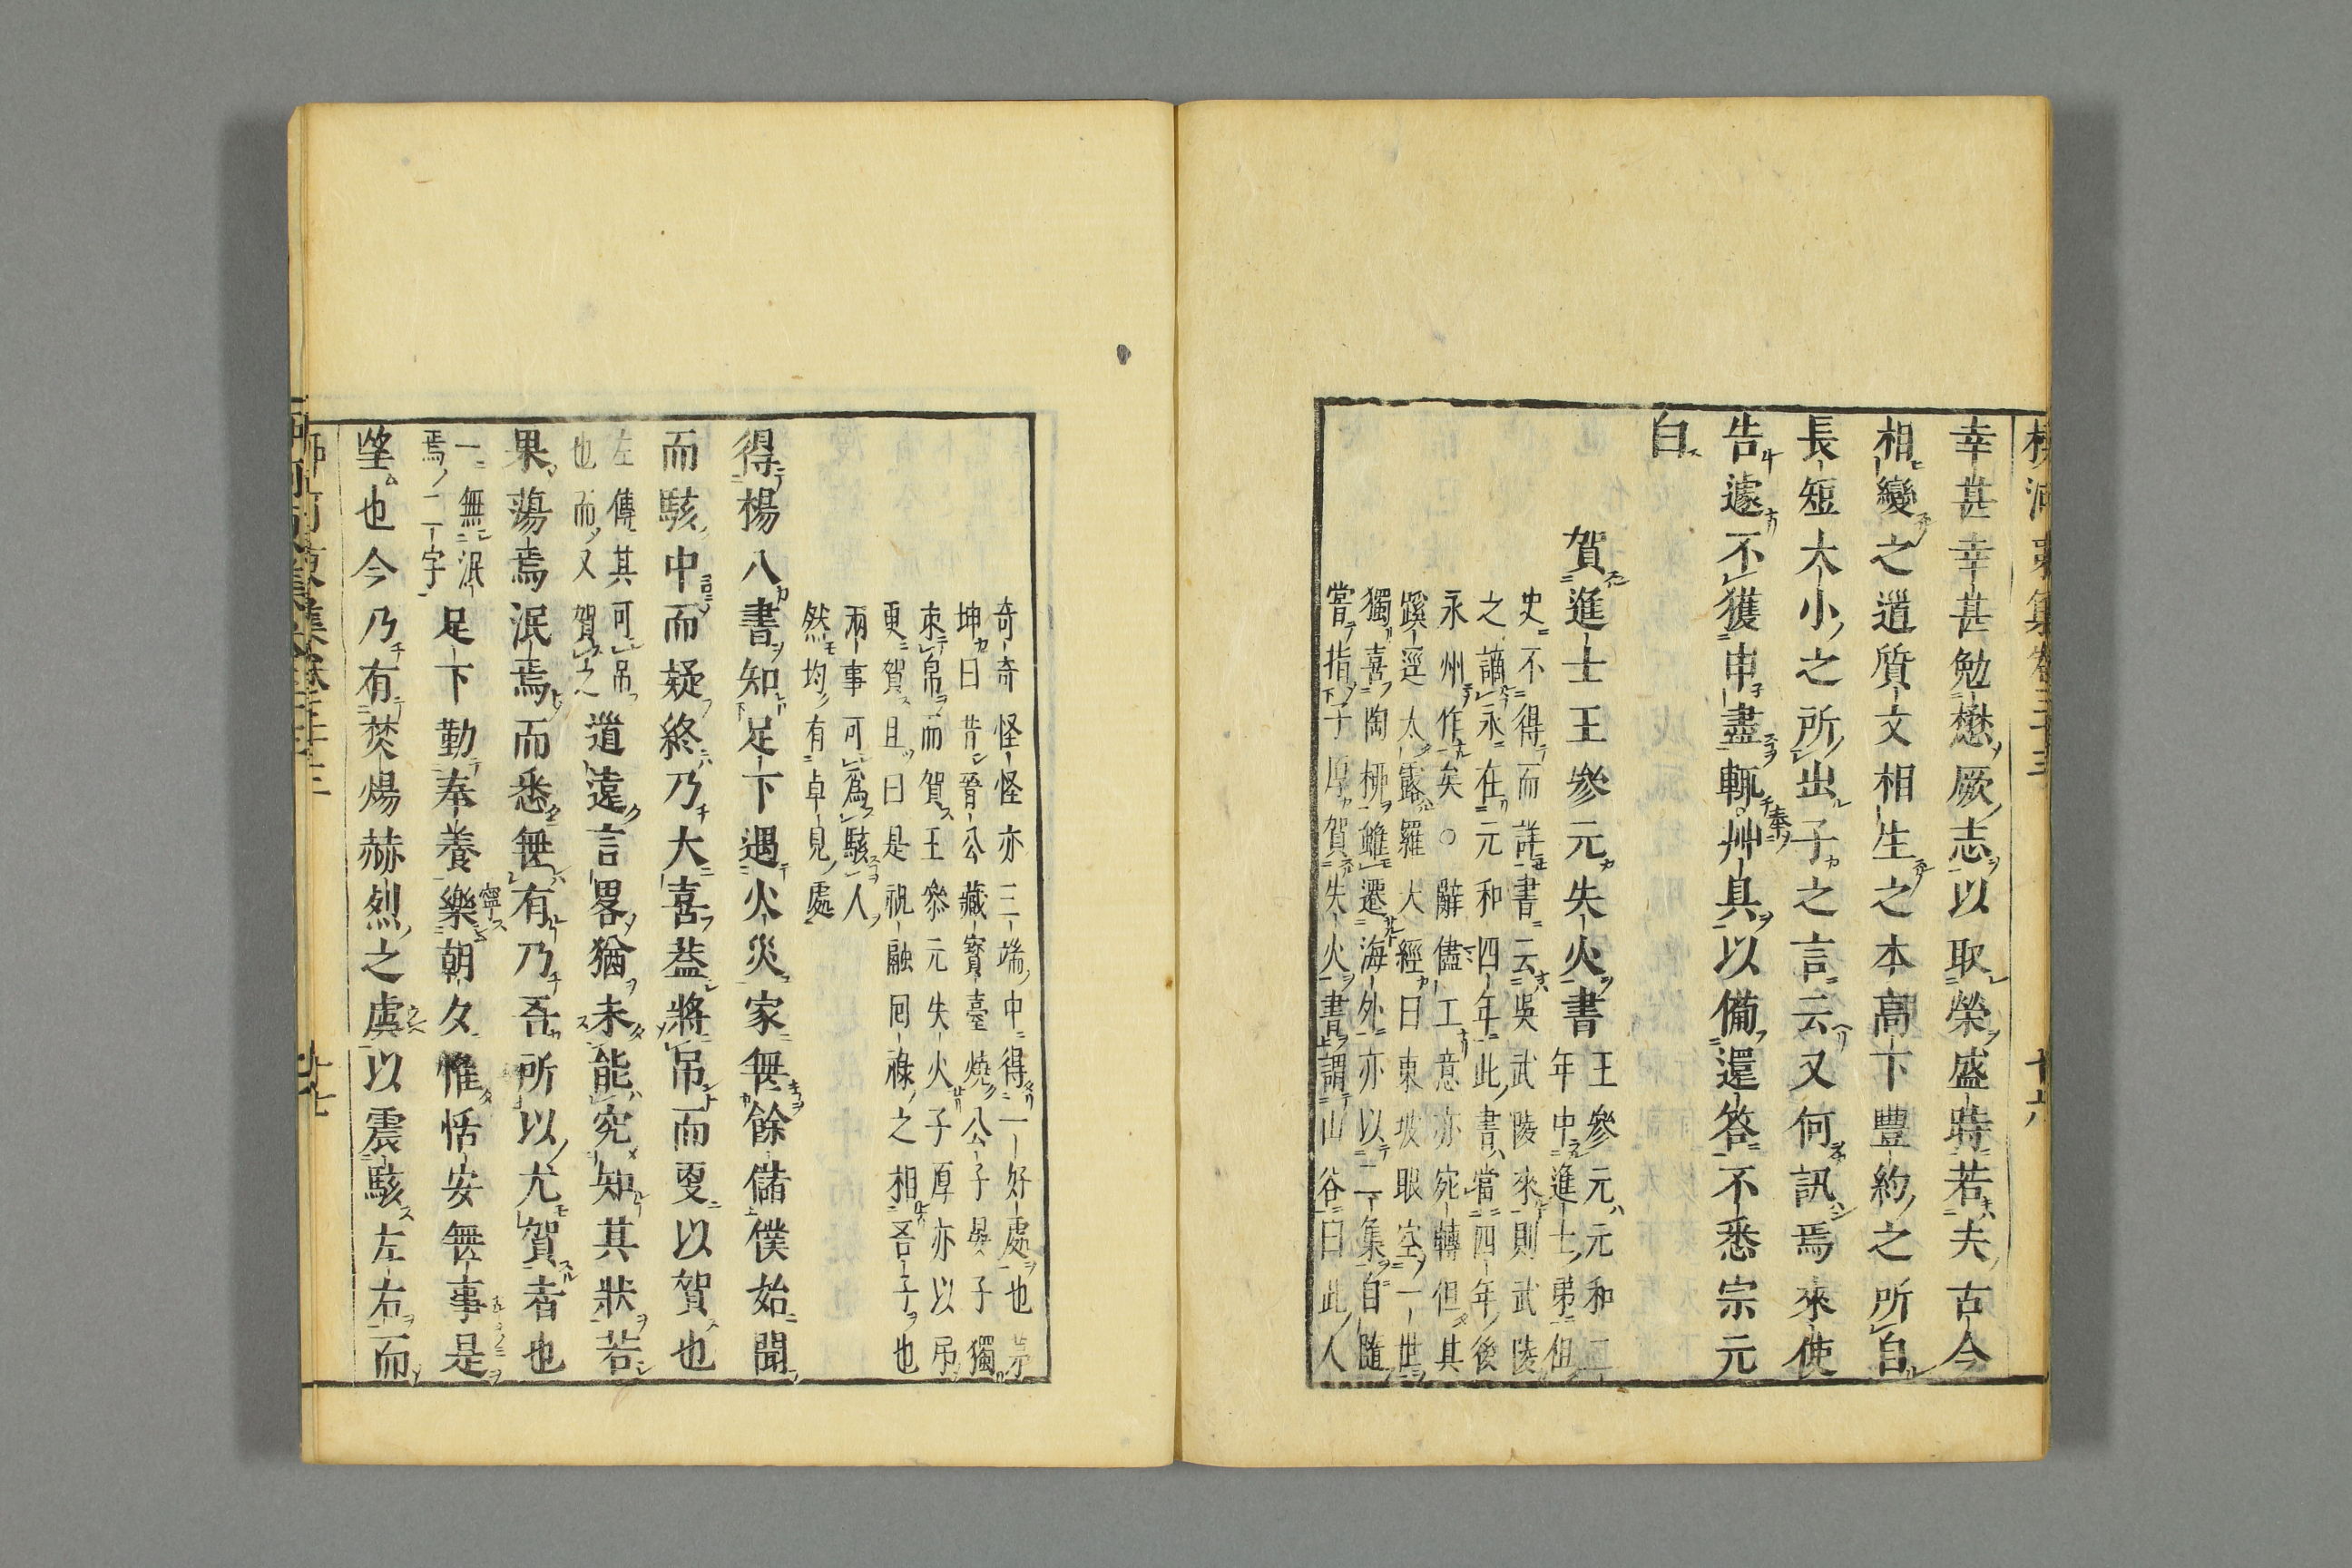 幸甚幸甚勉懋厥志以取榮盛時若夫古今
相變之道質文相生之本高下豐約之所自
長短大小之所出子之言云又何訊焉來使
告遽不獲申盡輒艸具以備還答不悉宗元
白
賀進士王參元失火書
王參元元和二
年中進士弟但
史不得而詳書云吳武陵來則武陵
之謫永在元和四年此書當四年後
永州作矣○辭儘工意亦宛轉但其
蹊逕太露羅大經曰東坡眼空一世
獨喜陶柳雖遷海外亦以二集自隨
嘗指子厚賀失火書謂山谷曰此人
奇奇怪怪亦三端中得一好處也茅
坤曰昔晉公藏寶臺燒公子晏子獨
束帛而賀王參元失火子厚亦以吊
更賀且曰是祝融囘祿之相吾子也
兩事可為駭人
然均有卓見處
得楊八書知足下遇火災家無餘儲僕始聞
而駭中而疑終乃大喜葢將吊而更以賀也
左傳其可吊
也而又賀之
道遠言畧猶未能究知其狀若
果蕩焉泯焉而悉無有乃吾所以尤賀者也
一無泯
焉二字
足下勤奉養樂朝夕惟恬安無事是
望也今乃有焚煬赫烈之虞以震駭左右而
十七